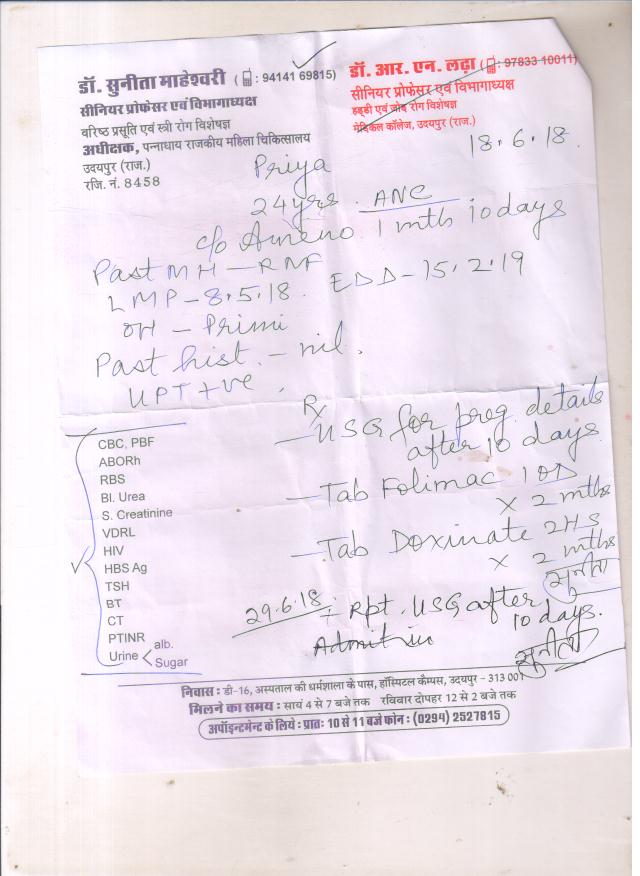 डॉ. सुनीता माहेश्वरी ( : 94141 69815)
सीनियर प्रोफेसर एवं विभागाध्यक्ष
वरिष्ठ प्रसूति एवं स्त्री रोग विशेषज्ञ
अधीक्षक, पन्नाधाय राजकीय महिला चिकित्सालय
उदयपुर (राज.)
रजि. नं. 8458
डॉ. आर. एन. लढ़ा ( : 97833 10011)
सीनियर प्रोफेसर एवं विभागाध्यक्ष
हड्डी एवं जोड़ रोग विशेषज्ञ
मेडिकल कॉलेज, उदयपुर (राज.)
18.6.18.
Priya
24 yrs. ANC
c/o Ameno 1 mth 10 days
Past MH - RNF
LMP - 8.5.18. EDD - 15.2.19
OH - Primi
Past hist. - nil.
UPT +ve.
Rx
- USG for preg details
after 10 days
- Tab Folimac 1 OD
x 2 mths
- Tab Doxinate 2HS
x 2 mths
सुनीता
CBC, PBF
ABORh
RBS
Bl. Urea
S. Creatinine
VDRL
HIV
HBS Ag
TSH
BT
CT
PTINR
Urine < alb.
Sugar
29.6.18. - Rpt. USG after
10 days.
सुनीता
निवास : डी-16, अस्पताल की धर्मशाला के पास, हॉस्पिटल कैम्पस, उदयपुर - 313 001
मिलने का समय : सायं 4 से 7 बजे तक रविवार दोपहर 12 से 2 बजे तक
अपॉइन्टमेन्ट के लिये : प्रातः 10 से 11 बजे फोन : (0294) 2527815